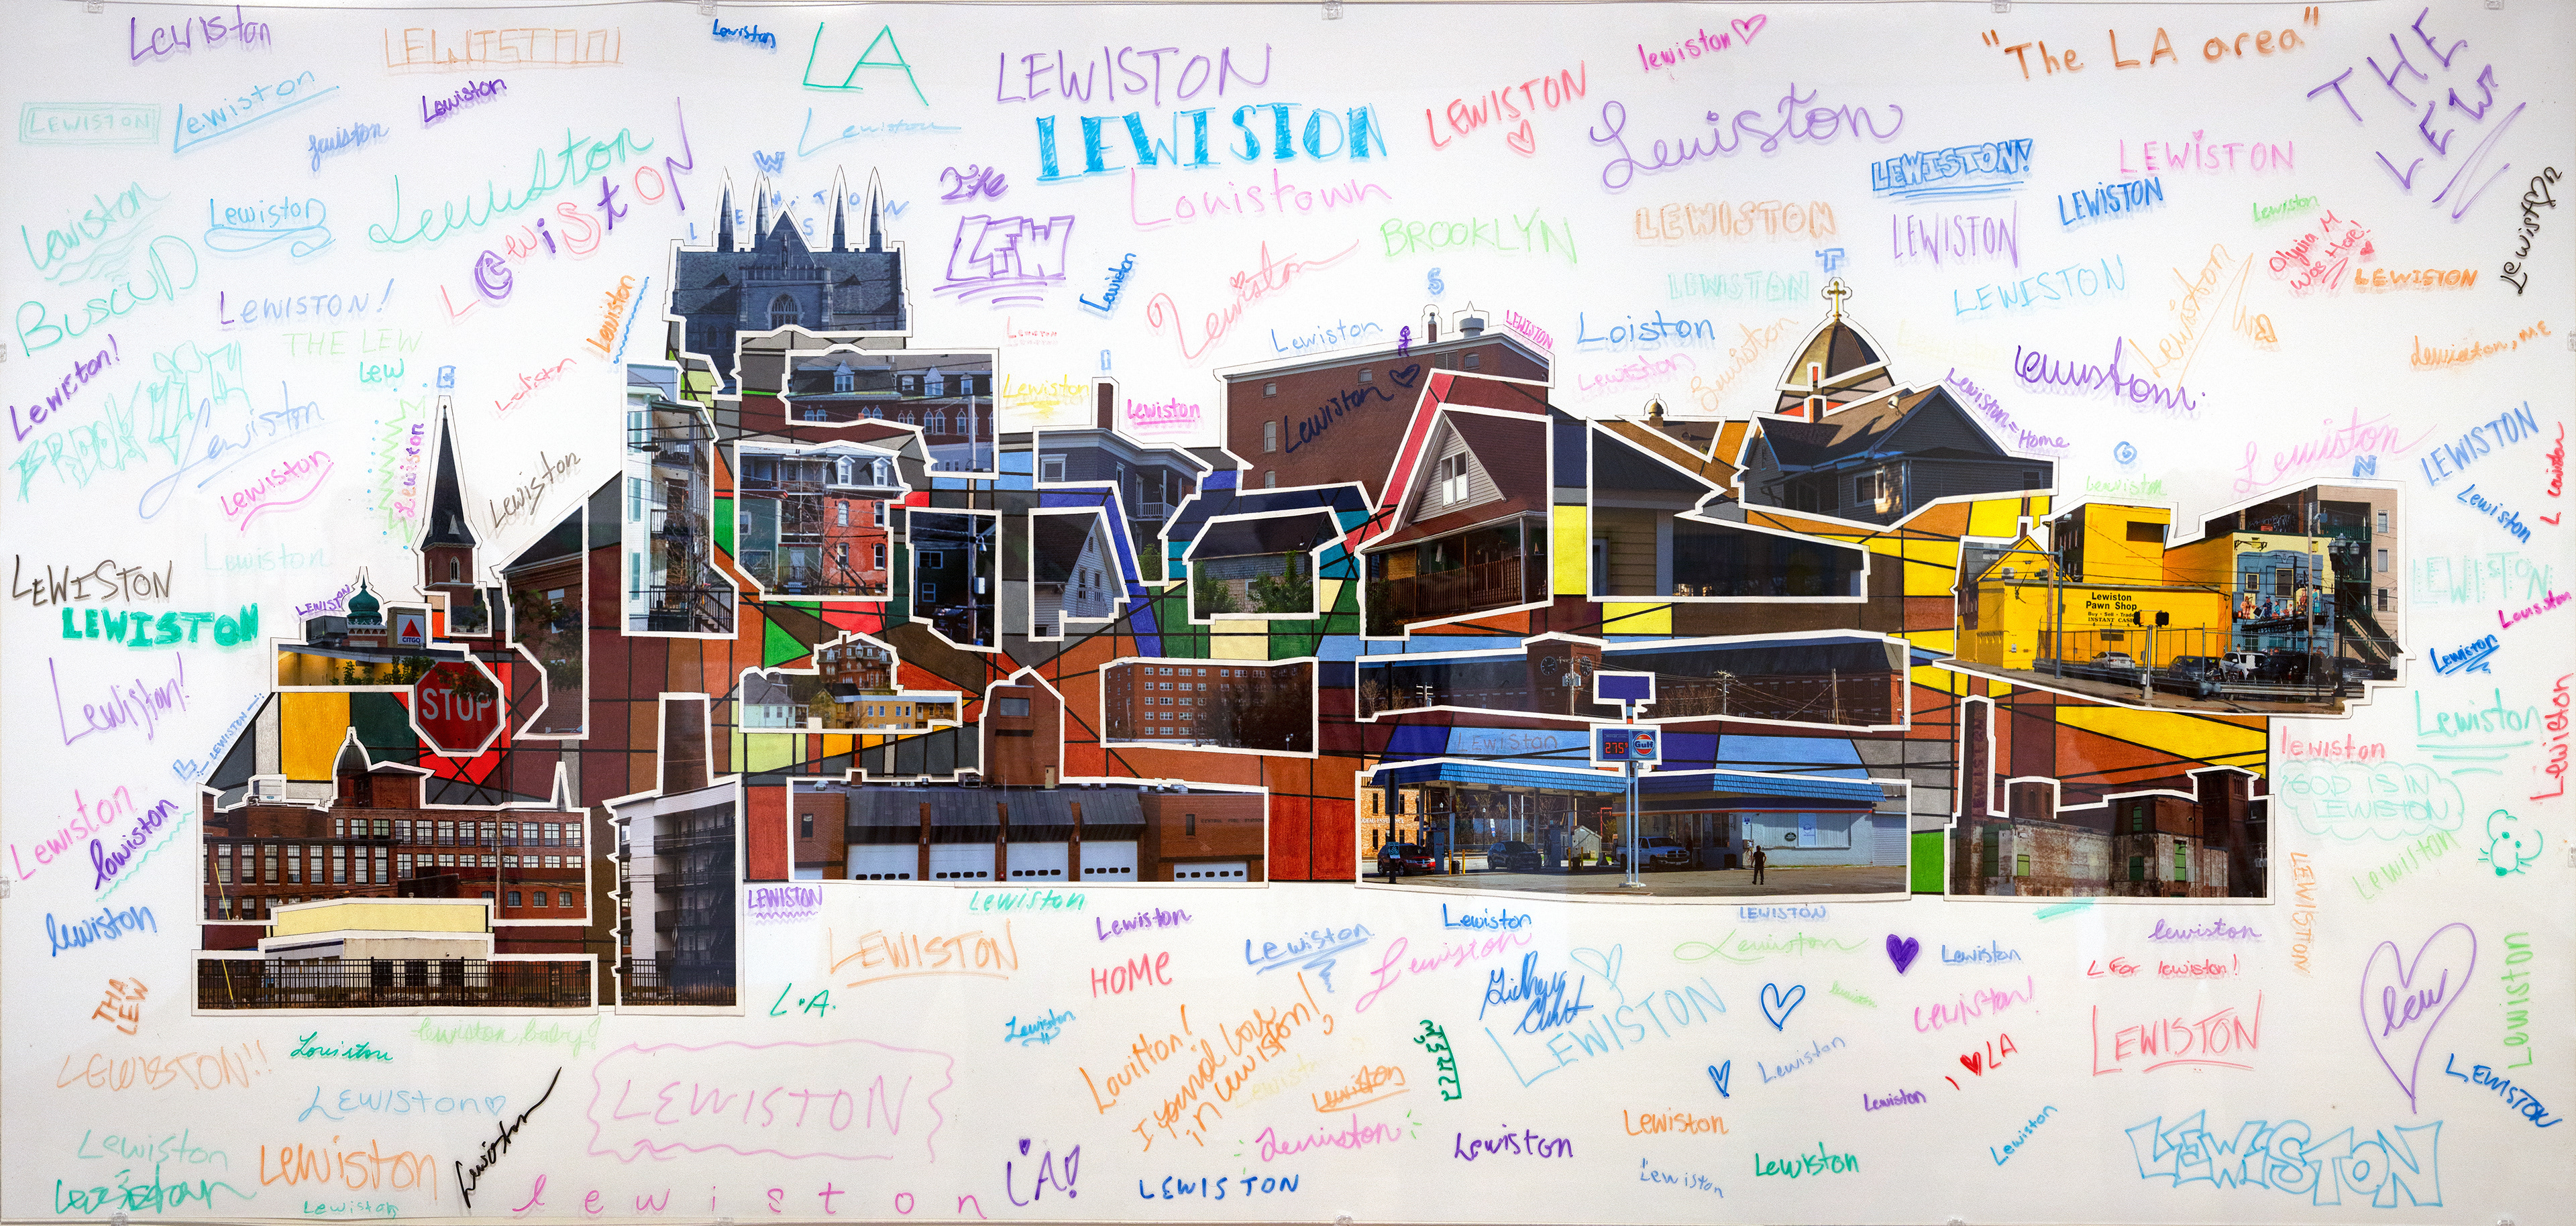 Lewiston
LEWISTON
Lewiston
LA
LEWISTON
lewiston
"The LA area"
THE
LEW
LEWISTON
Lewiston
Lewiston
Lewiston
Lewiston
LEWISTON
LEWISTON
Lewiston
LEWISTON!
LEWISTON
Lewiston
Lewiston
Lewiston
LEwiStON
W
THE
LEW
Louistown
BROOKLYN
LEWISTON
LEWISTON
LEWISTON
Lewiston
Olyvia M
Was Here!
Lewist
n
BUSCUD
LEWISTON!
Lewiston
Lewiston
Lewiston
S
LEWISTON
T
LEWISTON
Lewiston
LEWISTON
Lewiston!
THE LEW
Lew
E
Lewiston
Lewiston
Lewiston
I
Lewiston
Lewiston
Lewiston
LEWISTON
Loiston
Lewiston
Lewiston
Lewiston, ME
Lewiston
Lewiston
Lewiston
Lewiston
Lewiston
Lewiston = Home
O
Lewiston
Lewiston
N
LEWISTON
Lewiston
Lewiston
LEWISTON
Lewiston
LEWISTON
LEWISTON
CITGO
STOP
Lewiston
Pawn Shop
Buy - Sell - Trade
INSTANT CASH
LEWISTON
Lewiston
Lewiston
Lewiston!
LEWISTON
L
LEWISTON
275
Gulf
Lewiston
lewiston
Lewiston
GOD IS IN
LEWISTON
Lewiston
lewiston
Lewiston
lewiston
LEWISTON
LEWISTON
Lewiston
Lewiston
Lewiston
LEWISTON
lewiston
THA
LEW
LEWISTON
HOME
Lewiston
Lewiston
Lewiston
Lewiston
L For lewiston!
L.A.
lewiston, baby!
Lewiston
LEWISTON
Lewiston!
LEWISTON
lew
Lewiston
LEWISTON!!
Lewiston
I found love
in Lewiston!
Lewiston
Lewiston
LA
Lewiston
LEWISTON
Lewiston
LEWISTON
Lewiston
Lewiston
Lewiston
Lewiston
Lewiston
Lewiston
Lewiston
Lewiston
Lewiston
lewiston
LA!
LEWISTON
Lewiston
Lewiston
LEWISTON